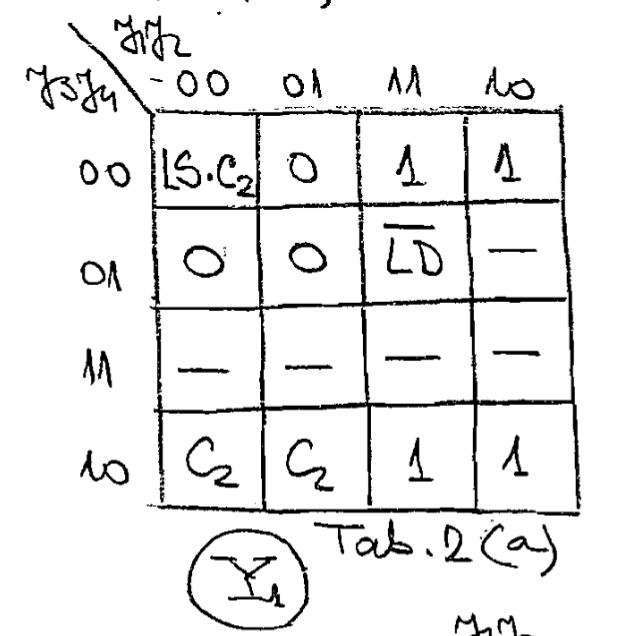 y1y2
y3y4 00 01 11 10
00 LS.C2 0 1 1
01 0 0 L̅D̅ —
11 — — — —
10 C2 C2 1 1
Tab.2(a)
Y1